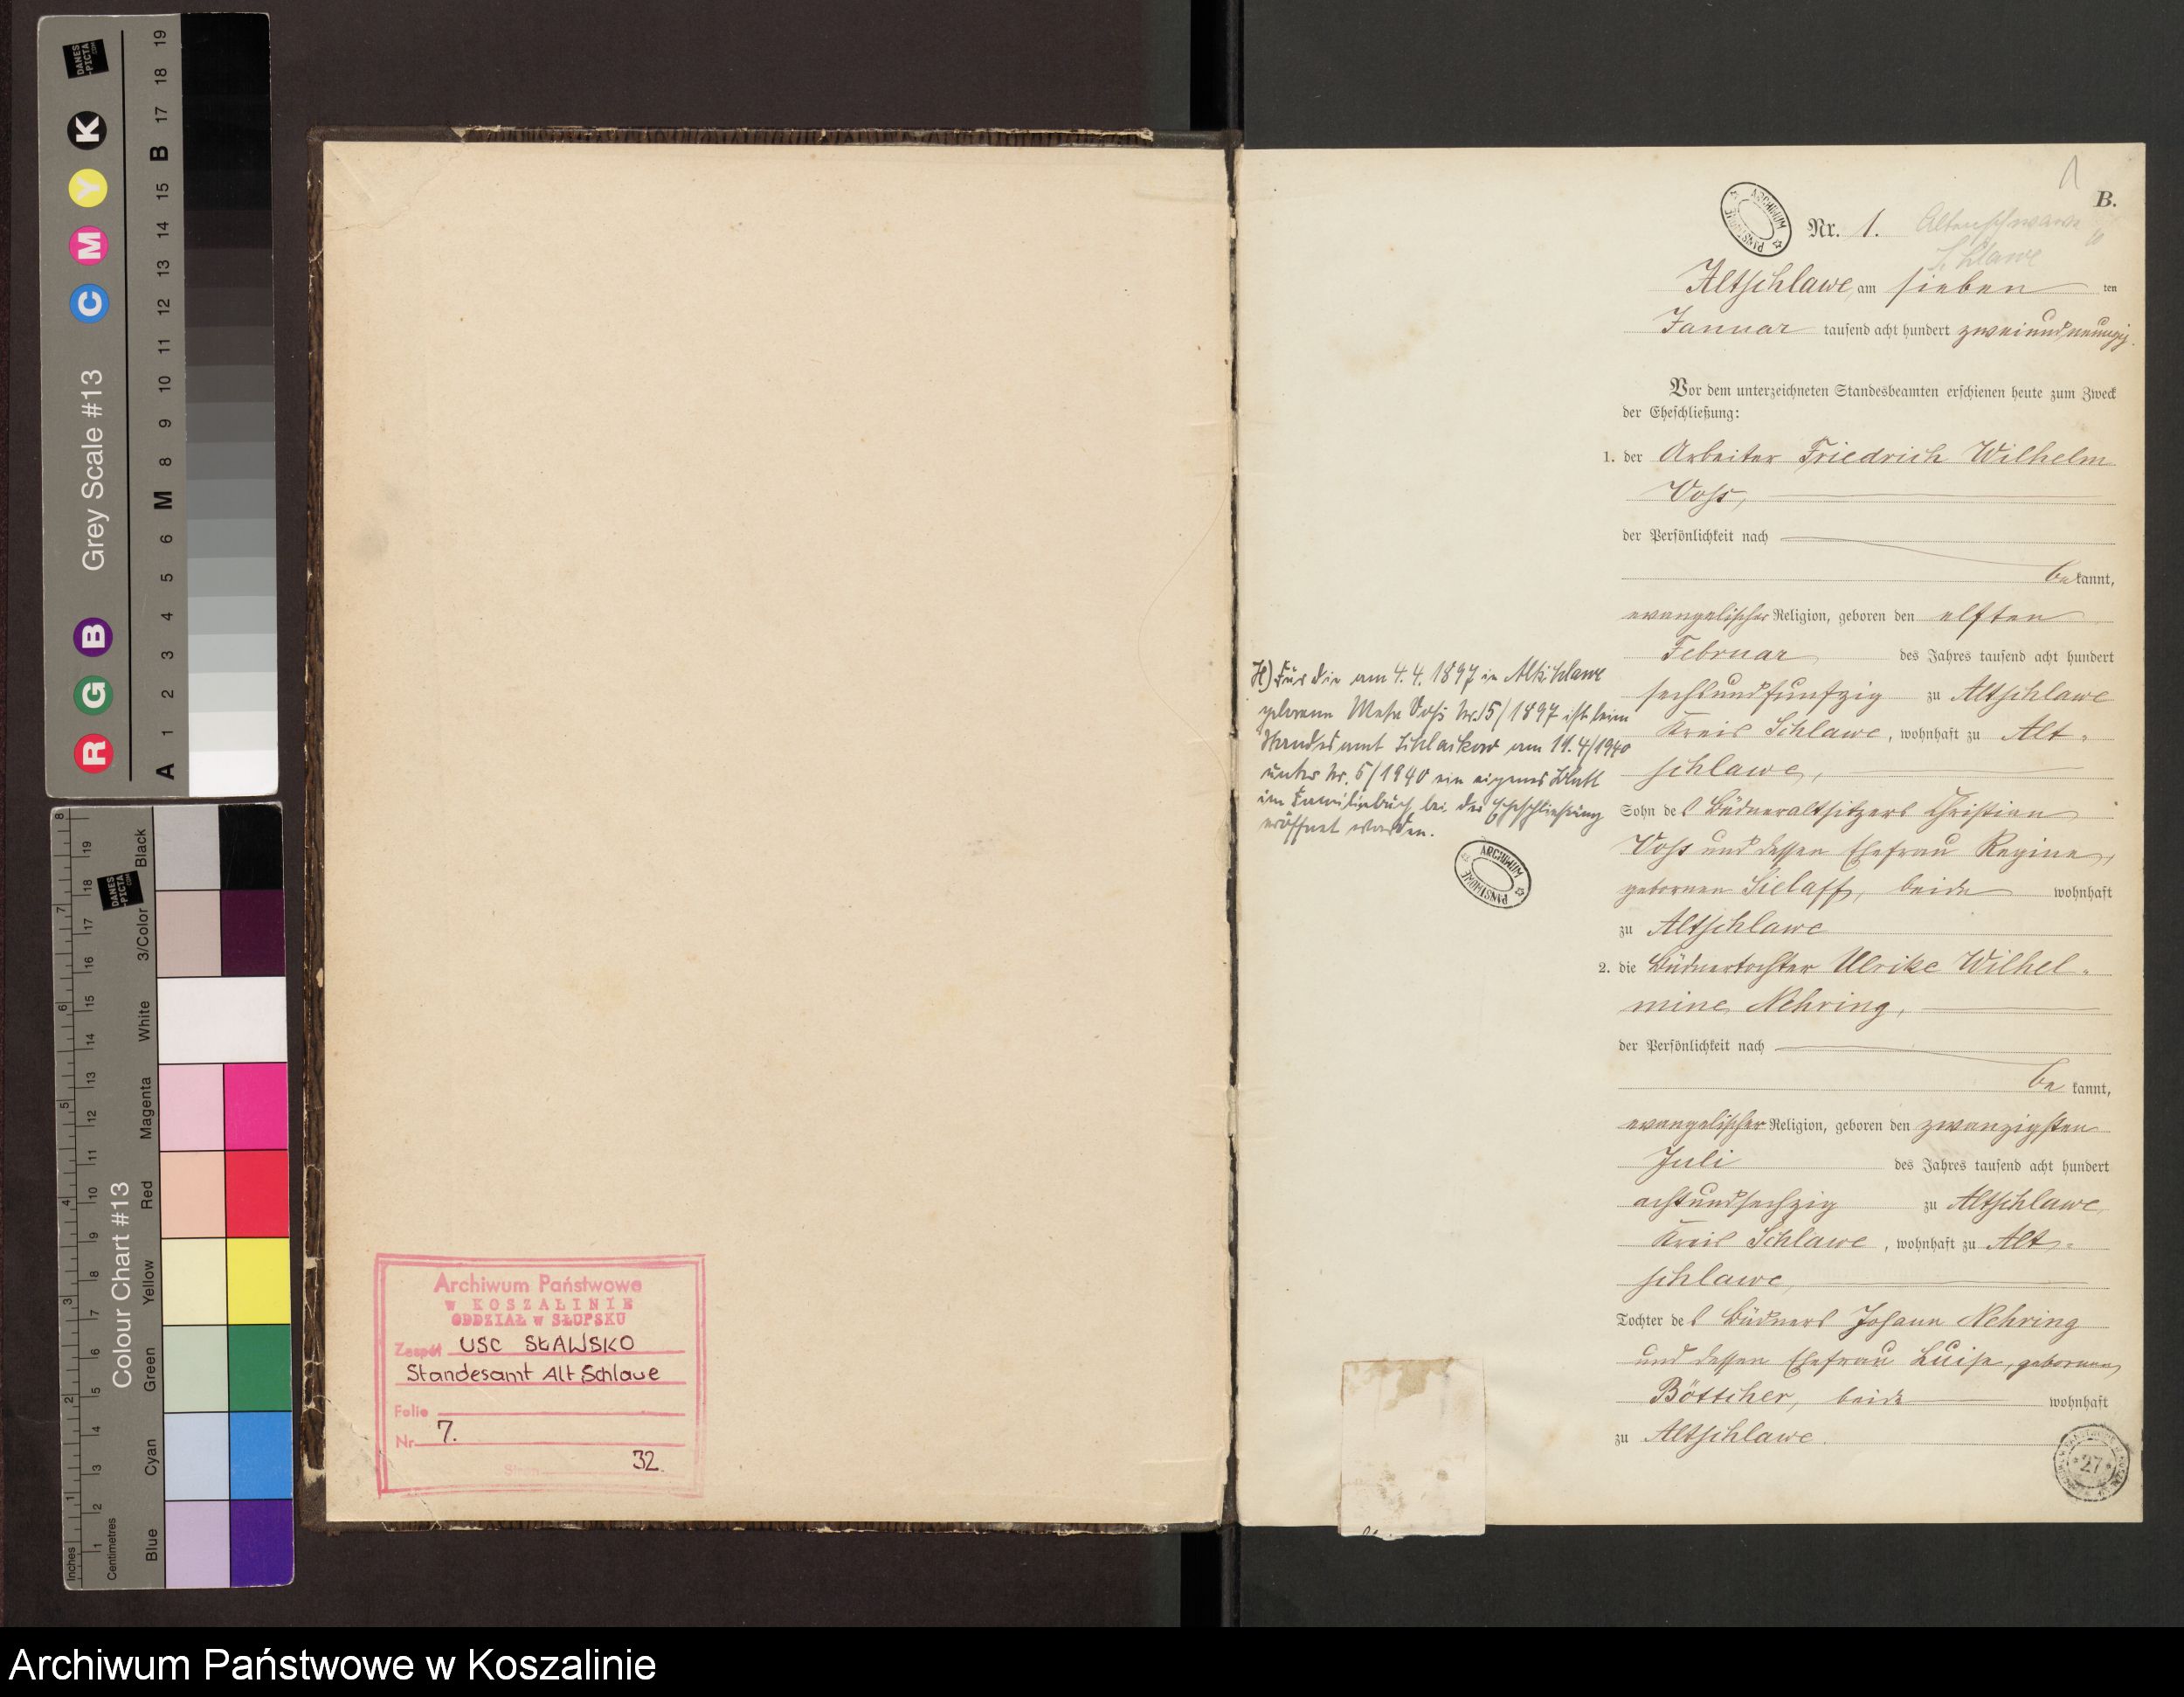 DANES
-PICTA
.COM
Grey Scale #13
R G B C M Y K
A 1 2 3 4 5 6 M 8 9 10 11 12 13 14 15 B 17 18 19
Colour Chart #13
Blue Cyan Green Yellow Red Magenta White 3/Color Black
Inches
Centimetres
DANES
-PICTA
.COM
Archiwum Państwowe
w KOSZALINIE
ODDZIAŁ w SŁUPSKU
Zespół USC SŁAWSKO
Standesamt Alt Schlawe
Folio
Nr 7.
32
Stron
1
B.
ARCHIWUM PAŃSTWOWE
Nr. 1.
Schlawe
Altschlawe, am sieben ten
Januar tausend acht hundert zweiundneunzig.
Vor dem unterzeichneten Standesbeamten erschienen heute zum Zweck
der Eheschließung:
1. der Arbeiter Friedrich Wilhelm
Voss,
der Persönlichkeit nach
bekannt,
evangelischer Religion, geboren den elften
Februar des Jahres tausend acht hundert
sechsundfünfzig zu Altschlawe
Kreis Schlawe, wohnhaft zu Alt-
schlawe,
Sohn des Büdneraltsitzers Christian
Voss und dessen Ehefrau Regine,
gebornen Sielaff, beide wohnhaft
zu Altschlawe
2. die Büdnertochter Ulrike Wilhel-
mine Nehring,
der Persönlichkeit nach
bekannt,
evangelischer Religion, geboren den zwanzigsten
Juli des Jahres tausend acht hundert
achtundsechzig zu Altschlawe,
Kreis Schlawe, wohnhaft zu Alt-
schlawe,
Tochter des Büdners Johann Nehring
und dessen Ehefrau Luise, gebornen
Böttcher, beide wohnhaft
zu Altschlawe.
27
H) Für die am 4.4.1897 in Altschlawe
geborene Voß Nr. 15/1897 ist beim
Standesamt Schlaikow am 11.4/1940
unter Nr. 5/1940 ein eigenes Blatt
im Familienbuch bei der Eheschließung
eröffnet worden.
ARCHIWUM PAŃSTWOWE
Archiwum Państwowe w Koszalinie